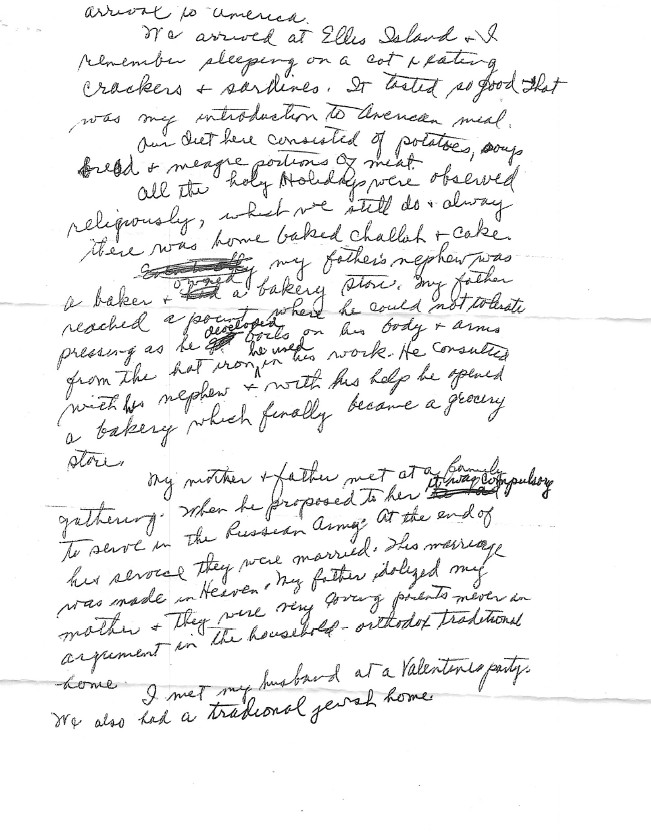 arrival to America.
We arrived at Ellis Island + I
remember sleeping on a cot + eating
crackers + sardines. It tasted so good that
was my introduction to American meal.
Our diet here consisted of potatoes, soups
bread + meagre portions of meat.
All the holy Holidays were observed
religiously, which we still do + alway
there was home baked challah + cake.
my father's nephew was
a baker + owned a bakery store. My father
reached a point where he could not tolerate
pressing as he developed boils on his body + arms
from the hot iron he used in his work. He consulted
with his nephew + with his help he opened
a bakery which finally became a grocery
store.
My mother + father met at a family
gathering. When he proposed to her it was compulsory
to serve in the Russian Army. At the end of
his service they were married. This marriage
was made in Heaven. My father idolized my
mother + they were very loving parents never an
argument in the household - orthodox traditional
home. I met my husband at a Valentines party.
We also had a tradional jewish home